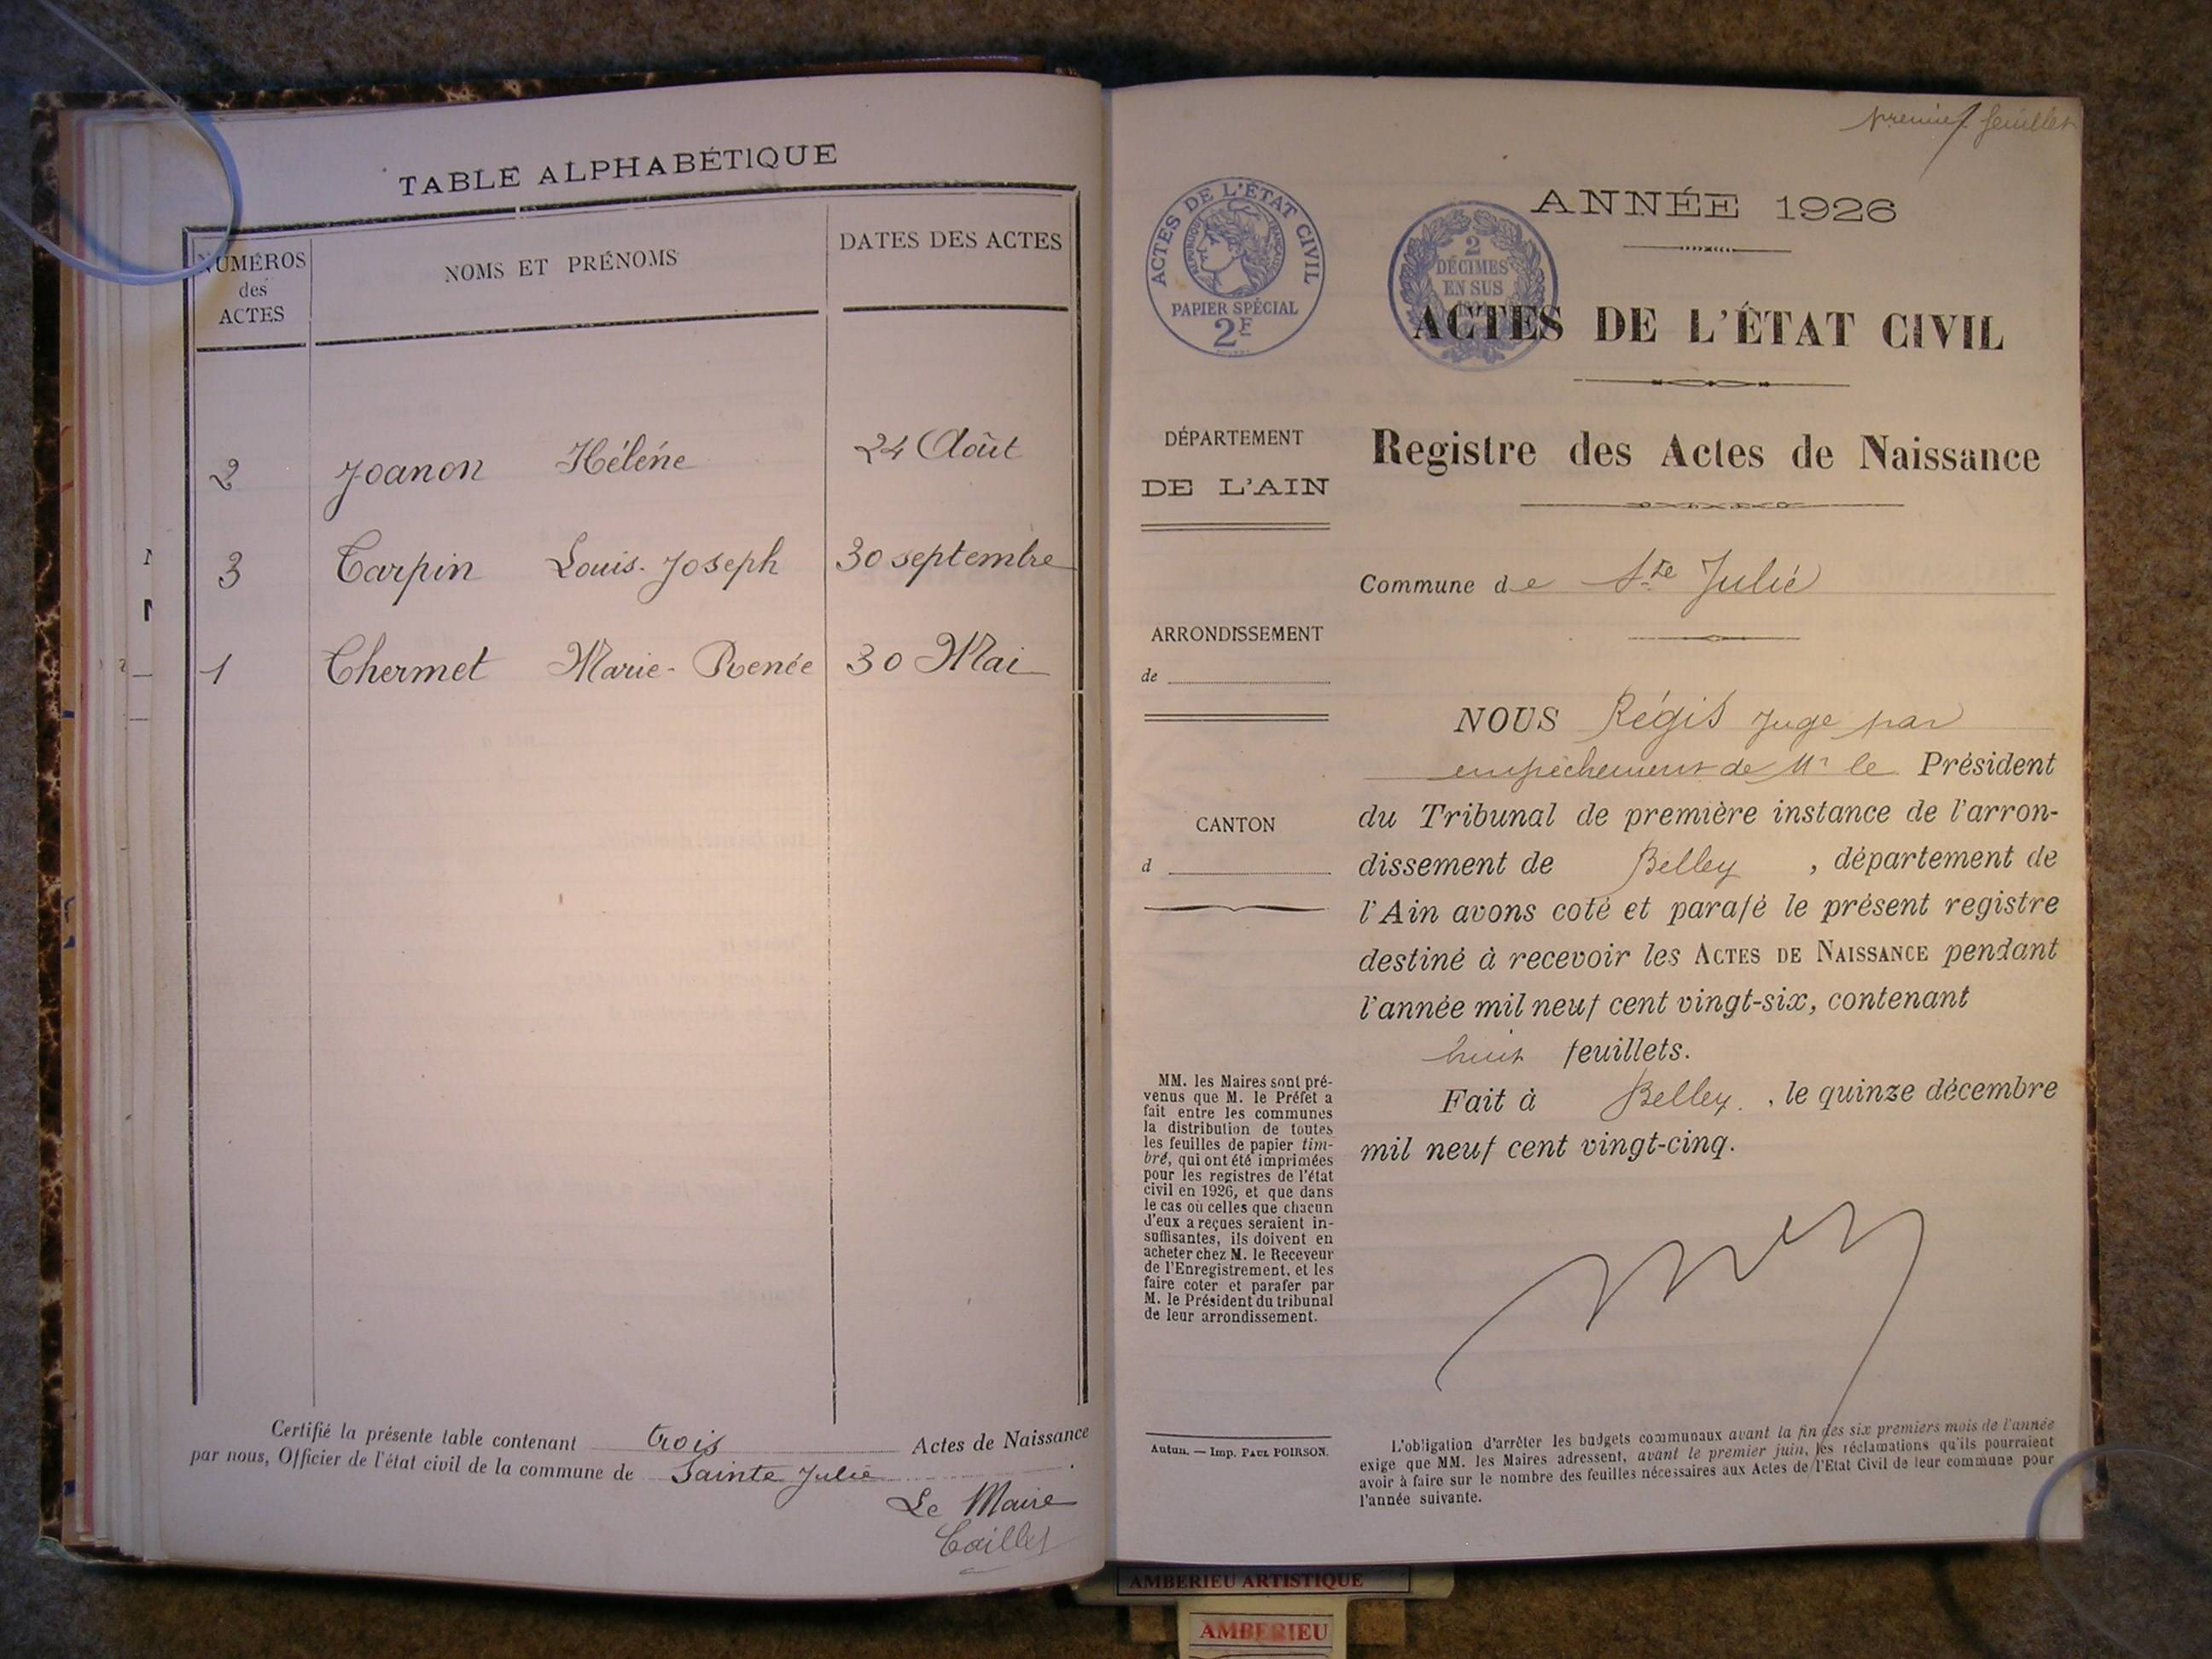 TABLE ALPHABÉTIQUE
NUMÉROS
des
ACTES
NOMS ET PRÉNOMS
DATES DES ACTES
2 Joanon Héléne 24 Août
3 Tarpin Louis-Joseph 30 septembre
1 Thermet Marie-Renée 30 Mai
Certifié la présente table contenant trois Actes de Naissance
par nous, Officier de l'état civil de la commune de Sainte Julie
Le Maire
premier feuillet
ACTES DE L'ÉTAT CIVIL
RÉPUBLIQUE FRANÇAISE
PAPIER SPÉCIAL
2F
2
DÉCIMES
EN SUS
ANNÉE 1926
ACTES DE L'ÉTAT CIVIL
Registre des Actes de Naissance
DÉPARTEMENT
DE L'AIN
ARRONDISSEMENT
de
CANTON
d
MM. les Maires sont pré-
venus que M. le Préfet a
fait entre les communes
la distribution de toutes
les feuilles de papier tim-
bré, qui ont été imprimées
pour les registres de l'état
civil en 1926, et que dans
le cas où celles que chacun
d'eux a reçues seraient in-
suffisantes, ils doivent en
acheter chez M. le Receveur
de l'Enregistrement, et les
faire coter et parafer par
M. le Président du tribunal
de leur arrondissement.
Autun. — Imp. PAUL POIRSON.
Commune de Ste Julie
NOUS Régis Juge par
empêchement de Mr le Président
du Tribunal de première instance de l'arron-
dissement de Belley, département de
l'Ain avons coté et parafé le présent registre
destiné à recevoir les ACTES DE NAISSANCE pendant
l'année mil neuf cent vingt-six, contenant
huit feuillets.
Fait à Belley, le quinze décembre
mil neuf cent vingt-cinq.
L'obligation d'arrêter les budgets communaux avant la fin des six premiers mois de l'année
exige que MM. les Maires adressent, avant le premier juin, les réclamations qu'ils pourraient
avoir à faire sur le nombre des feuilles nécessaires aux Actes de l'Etat Civil de leur commune pour
l'année suivante.
AMBERIEU ARTISTIQUE
AMBERIEU